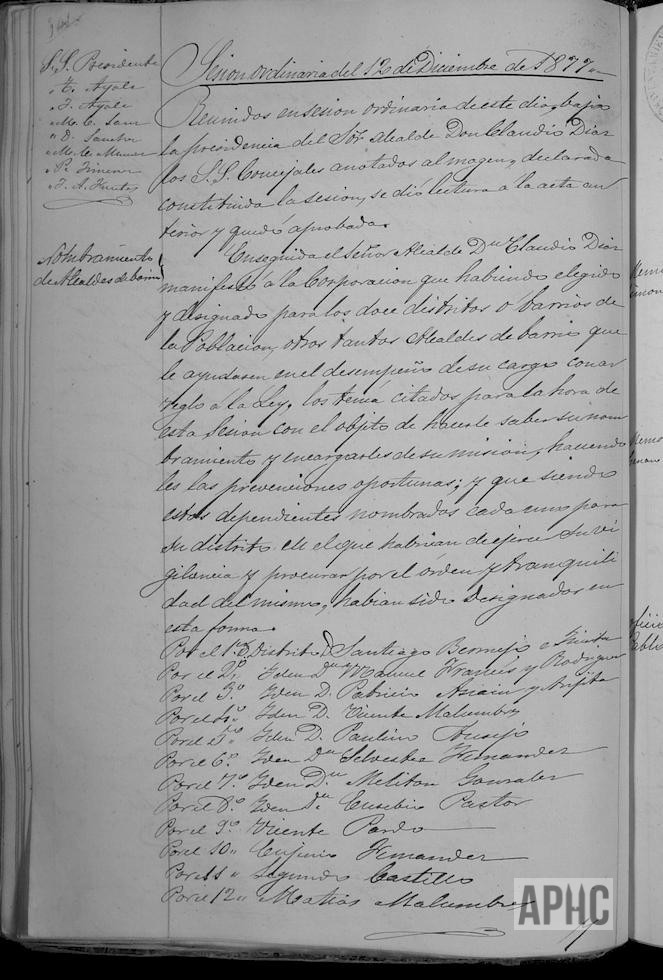 S. S. Presidente
" T. Ayala
" M. C. Sanz
" D. Sanchez
" P. Jimenez
" J. A.
Sesion ordinaria del 12 de Diciembre de 1877 "
Reunidos en sesion ordinaria de este dia, bajo
la presidencia del Sor. Alcalde Don Claudio Diaz
los S. S. Concejales anotados al margen, declarada
constituida la sesion, se dió lectura a la acta an
terior y quedó aprobada.
Nombramiento
de Alcaldes de barrio
Enseguida el Señor Alcalde Dn. Claudio Diaz
manifestó á la Corporacion que habiendo elegido
y designado para los doce distritos o barrios de
la Poblacion, otros tantos Alcaldes de barrio que
le ayudasen en el desempeño de su cargo con ar
reglo á la Ley, los tenia citados para la hora de
esta Sesion con el objeto de hacerle saber su nom
bramiento y encargarles de su mision, haciendo
les las prevenciones oportunas; y que siendo
estos dependientes nombrados cada uno para
su distrito en el que habrian de ejercer su vi
gilancia y procurar por el orden y tranquili
dad del mismo, habian sido designados en
esta forma.
Por el 1er. Distrito, Santiago Bermejo e
Por el 2º Iden Dn. Manuel Francés y Rodriguez
Por el 3º Iden D. Patricio y
Por el 4º Iden D. Vicente Malumbres
Por el 5º Iden D. Paulino
Por el 6º Iden Dn. Silvestre Fernandez
Por el 7º Iden Dn. Meliton Gonzalez
Por el 8º Iden Dn. Eusebio Pastor
Por el 9º Vicente Pardo
Por el 10 " Eugenio Fernandez
Por el 11 " Segundo Castillo
Por el 12 " Matias Malumbres
APHC